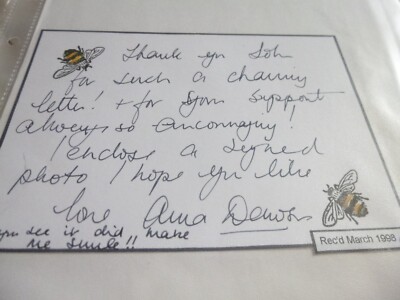 Thank you Joh
for such a charming
letter! + for your support
always so encouraging!
I enclose a signed
photo I hope you like
love Anna Dawson
you see it did make
me smile!!
Rec'd March 1998